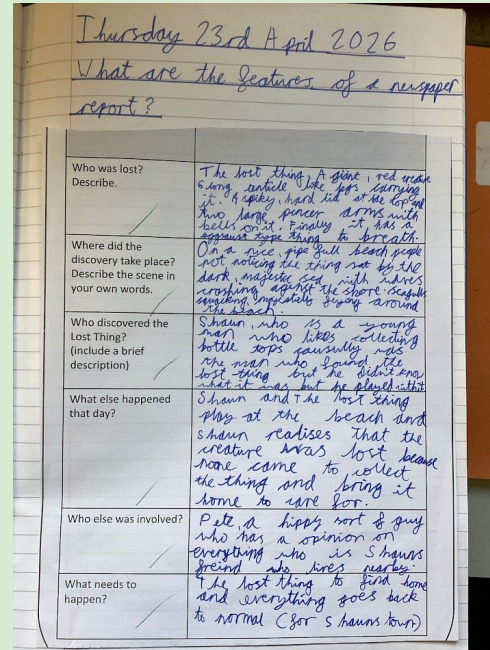 Thursday 23rd April 2026
What are the features of a newspaper
report?
Who was lost?
Describe.
The lost thing, A giant, red creature
6 long tenticle like legs carrying
it. A spiky, hard lid at the top and
two large pencer arms with
bells on it. Finally it has a
type thing to breath.
Where did the
discovery take place?
Describe the scene in
your own words.
On a nice, pipe full beach people
not noticing the thing sat by the
dark, majestic sea with waves
crashing against the shore. Seagulls
flying around
the beach.
Who discovered the
Lost Thing?
(include a brief
description)
Shaun, who is a young
man who likes collecting
bottle tops was
the man who found the
lost thing but he didn't know
what it was but he played with it
What else happened
that day?
Shaun and The lost thing
play at the beach and
shaun realises that the
creature was lost because
none came to collect
the thing and bring it
home to care for.
Who else was involved?
Pete, a hippy sort of guy
who has a opinion on
everything who is Shauns
freind who lives nearby.
What needs to
happen?
The lost thing to find home
and everything goes back
to normal (for shauns town)